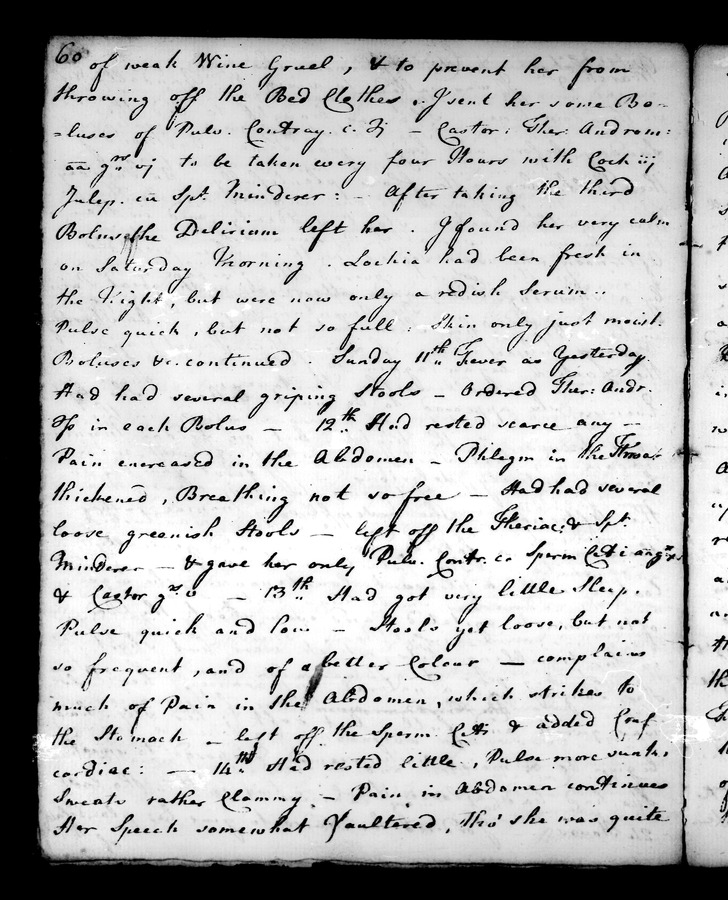 60
of weak Wine Gruel, & to prevent her from
throwing off the Bed Clothes. I sent her some Bo-
=luses of Pulv. Contray. c. ʒj - Castor: Ther: Androm:
aa grs vj to be taken every four Hours with Coch iij
Julep. cū Spt. Minderer: - After taking the third
Bolus the Delirium left her. I found her very calm
on Saturday Morning. Lochia had been fresh in
the Night, but were now only a redish Serum..
Pulse quick, but not so full. Skin only just moist.
Boluses &c. continued. Sunday 11th Fever as Yesterday.
Had had several griping Stools - Ordered Ther: Andr.
in each Bolus - 12th Had rested scarce any -
Pain encreased in the Abdomen - Phlegm in the Throat
thickened, Breathing not so free - Had had several
loose greenish Stools - left off the Theriac: & Spt.
Minderer - & gave her only Pulv. Contr. cū Sperm Ceti
& Castor gr. v - 13th Had got very little Sleep.
Pulse quick and low - Stools yet loose, but not
so frequent, and of a better Colour - complains
much of Pain in the Abdomen, which strikes to
the Stomach - left off the Sperm Ceti & added Conf
cardiac: - 14th Had rested little, Pulse more sunk,
Sweats rather Clammy - Pain in Abdomen continues
Her Speech somewhat Faultered, tho' she was quite